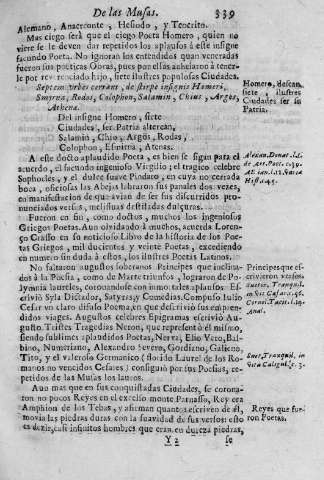 De las Musas. 339
Alemano, Anacreonte, Hesiodo, y Teocrito.
Mas ciego será que el ciego Poeta Homero, quien no
viere se le deven dar repetidos los aplausos à este insigne
facundo Poeta. No ignoran los entendidos quan veneradas
fueron sus poeticas Obras, pues por ellas anhelaron à tener-
le por reverenciado hijo, siete ilustres populosas Ciudades.
Septem urbes certant, de stirpe insignis Homeri,
Smyrna, Rodos, Colophon, Salamin, Chius, Argos,
Athenæ.
Del insigne Homero, siete
Ciudades, ser Patria altercan,
Salamin, Chio, Argos, Rodas,
Colophon, Esmirna, Atenas.
Homero, descan
siete ilustres
Ciudades ser su
Patria.
A este docto aplaudido Poeta, es bien se sigan para el
acuerdo, el facundo ingenioso Virgilio; el tragico celebre
Sophocles, y el dulce suave Pindaro, en cuya no cerrada
boca, oficiosas las Abejas labraron sus panales dos vezes,
en manifestacion de que avian de ser sus discurridos pro-
nunciados versos, melifluas destiladas dulçuras.
Fueron en fin, como doctos, muchos los ingeniosos
Griegos Poetas. Aun olvidando à muchos, acuerda Loren-
ço Crasso en su noticioso Libro de la historia de los Poe-
tas Griegos, mil ducientos y veinte Poetas, excediendo
en numero sin duda à estos, los ilustres Poetas Latinos.
No faltaron augustos soberanos Principes que inclina-
dos à la Poesia, como de Marte triunfos, lograron de Po-
lymnia laureles, coronandose con inmortales aplausos: Es-
crivió Syla Dictador, Satyras, y Comedias. Compuso Julio
Cesar vn claro difuso Poema, en que descrivió sus empren-
didos viages. Augustos celebres Epigramas escrivió Au-
gusto. Tristes Tragedias Neron, que representò él mismo,
siendo sublimes aplaudidos Poetas, Nerva, Elio Vero, Bal-
bino, Numeriano, Alexandro Severo, Gordiano, Galieno,
Tito, y el valeroso Germanico (florido Laurel de los Ro-
manos no vencidos Cesares) consiguió por sus Poesias, re-
petidos de las Musas los lauros.
Principes que es-
crivieron versos.
Suet. Tranquil. in
Vita Caligul. c. 3.
Aun mas que en sus conquistadas Ciudades, se corona-
ron no pocos Reyes en el excelso monte Parnasso, Rey era
Amphion de los Tebas, y afirman quantos escriven de él,
movia las piedras duras con la suavidad de sus versos: esto
es dezir, casi infinitos hombres que eran en dureza piedras,
Reyes que fue-
ron Poetas.
Y 2 se